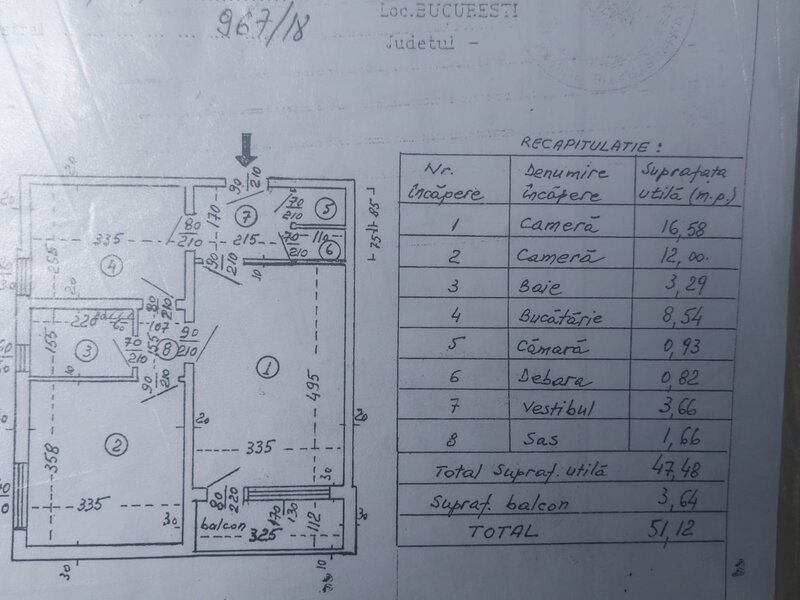 967/18
Loc.BUCURESTI
Judetul -
RECAPITULATIE :
Nr. încăpere Denumire încăpere Suprafata utilă (m.p.)
1 Cameră 16,58
2 Cameră 12,00
3 Baie 3,29
4 Bucătărie 8,54
5 Cămară 0,93
6 Debara 0,82
7 Vestibul 3,66
8 Sas 1,66
Total Supraf. utilă 47,48
Supraf. balcon 3,64
TOTAL 51,12
20
90
210
170
7
70
210
5
85
75
80
210
335
215
70
210
110
6
255
4
90
210
10
20
80
210
220
60
107
155
3
70
210
155
8
90
210
90
210
10
1
495
2
20
20
358
335
335
30
30
80
220
balcon
170
130
112
30
325
30
10